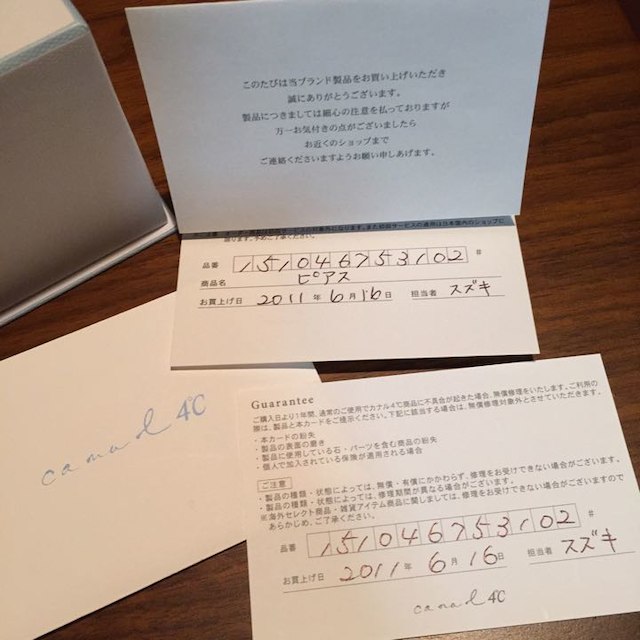 このたびは当ブランド製品をお買い上げいただき
誠にありがとうございます。
製品につきましては細心の注意を払っておりますが
万一お気付きの点がございましたら
お近くのショップまで
ご連絡くださいますようお願い申しあげます。
限ります。予めご了承ください。
品番 151046753102 #
商品名 ピアス
お買上げ日 2011年 6月16日 担当者 スズキ
canal 4℃
Guarantee
ご購入日より1年間、通常のご使用でカナル4℃商品に不具合が起きた場合、無償修理をいたします。ご利用の
際は、製品と本カードをご提示ください。下記に該当する場合は、無償修理対象外とさせていただきます。
・本カードの紛失
・製品の表面の磨き
・製品に使用している石・パーツを含む商品の紛失
・個人で加入されている保険が適用される場合
ご注意
・製品の種類・状態によっては、無償・有償にかかわらず、修理をお受けできない場合がございます。
・製品の種類・状態によっては、修理期間が異なる場合がございます。
※海外セレクト商品・雑貨アイテム商品に関しましては、修理をお受けできない場合がございますので
あらかじめ、ご了承ください。
品番 151046753102 #
お買上げ日 2011年 6月16日 担当者 スズキ
canal 4℃